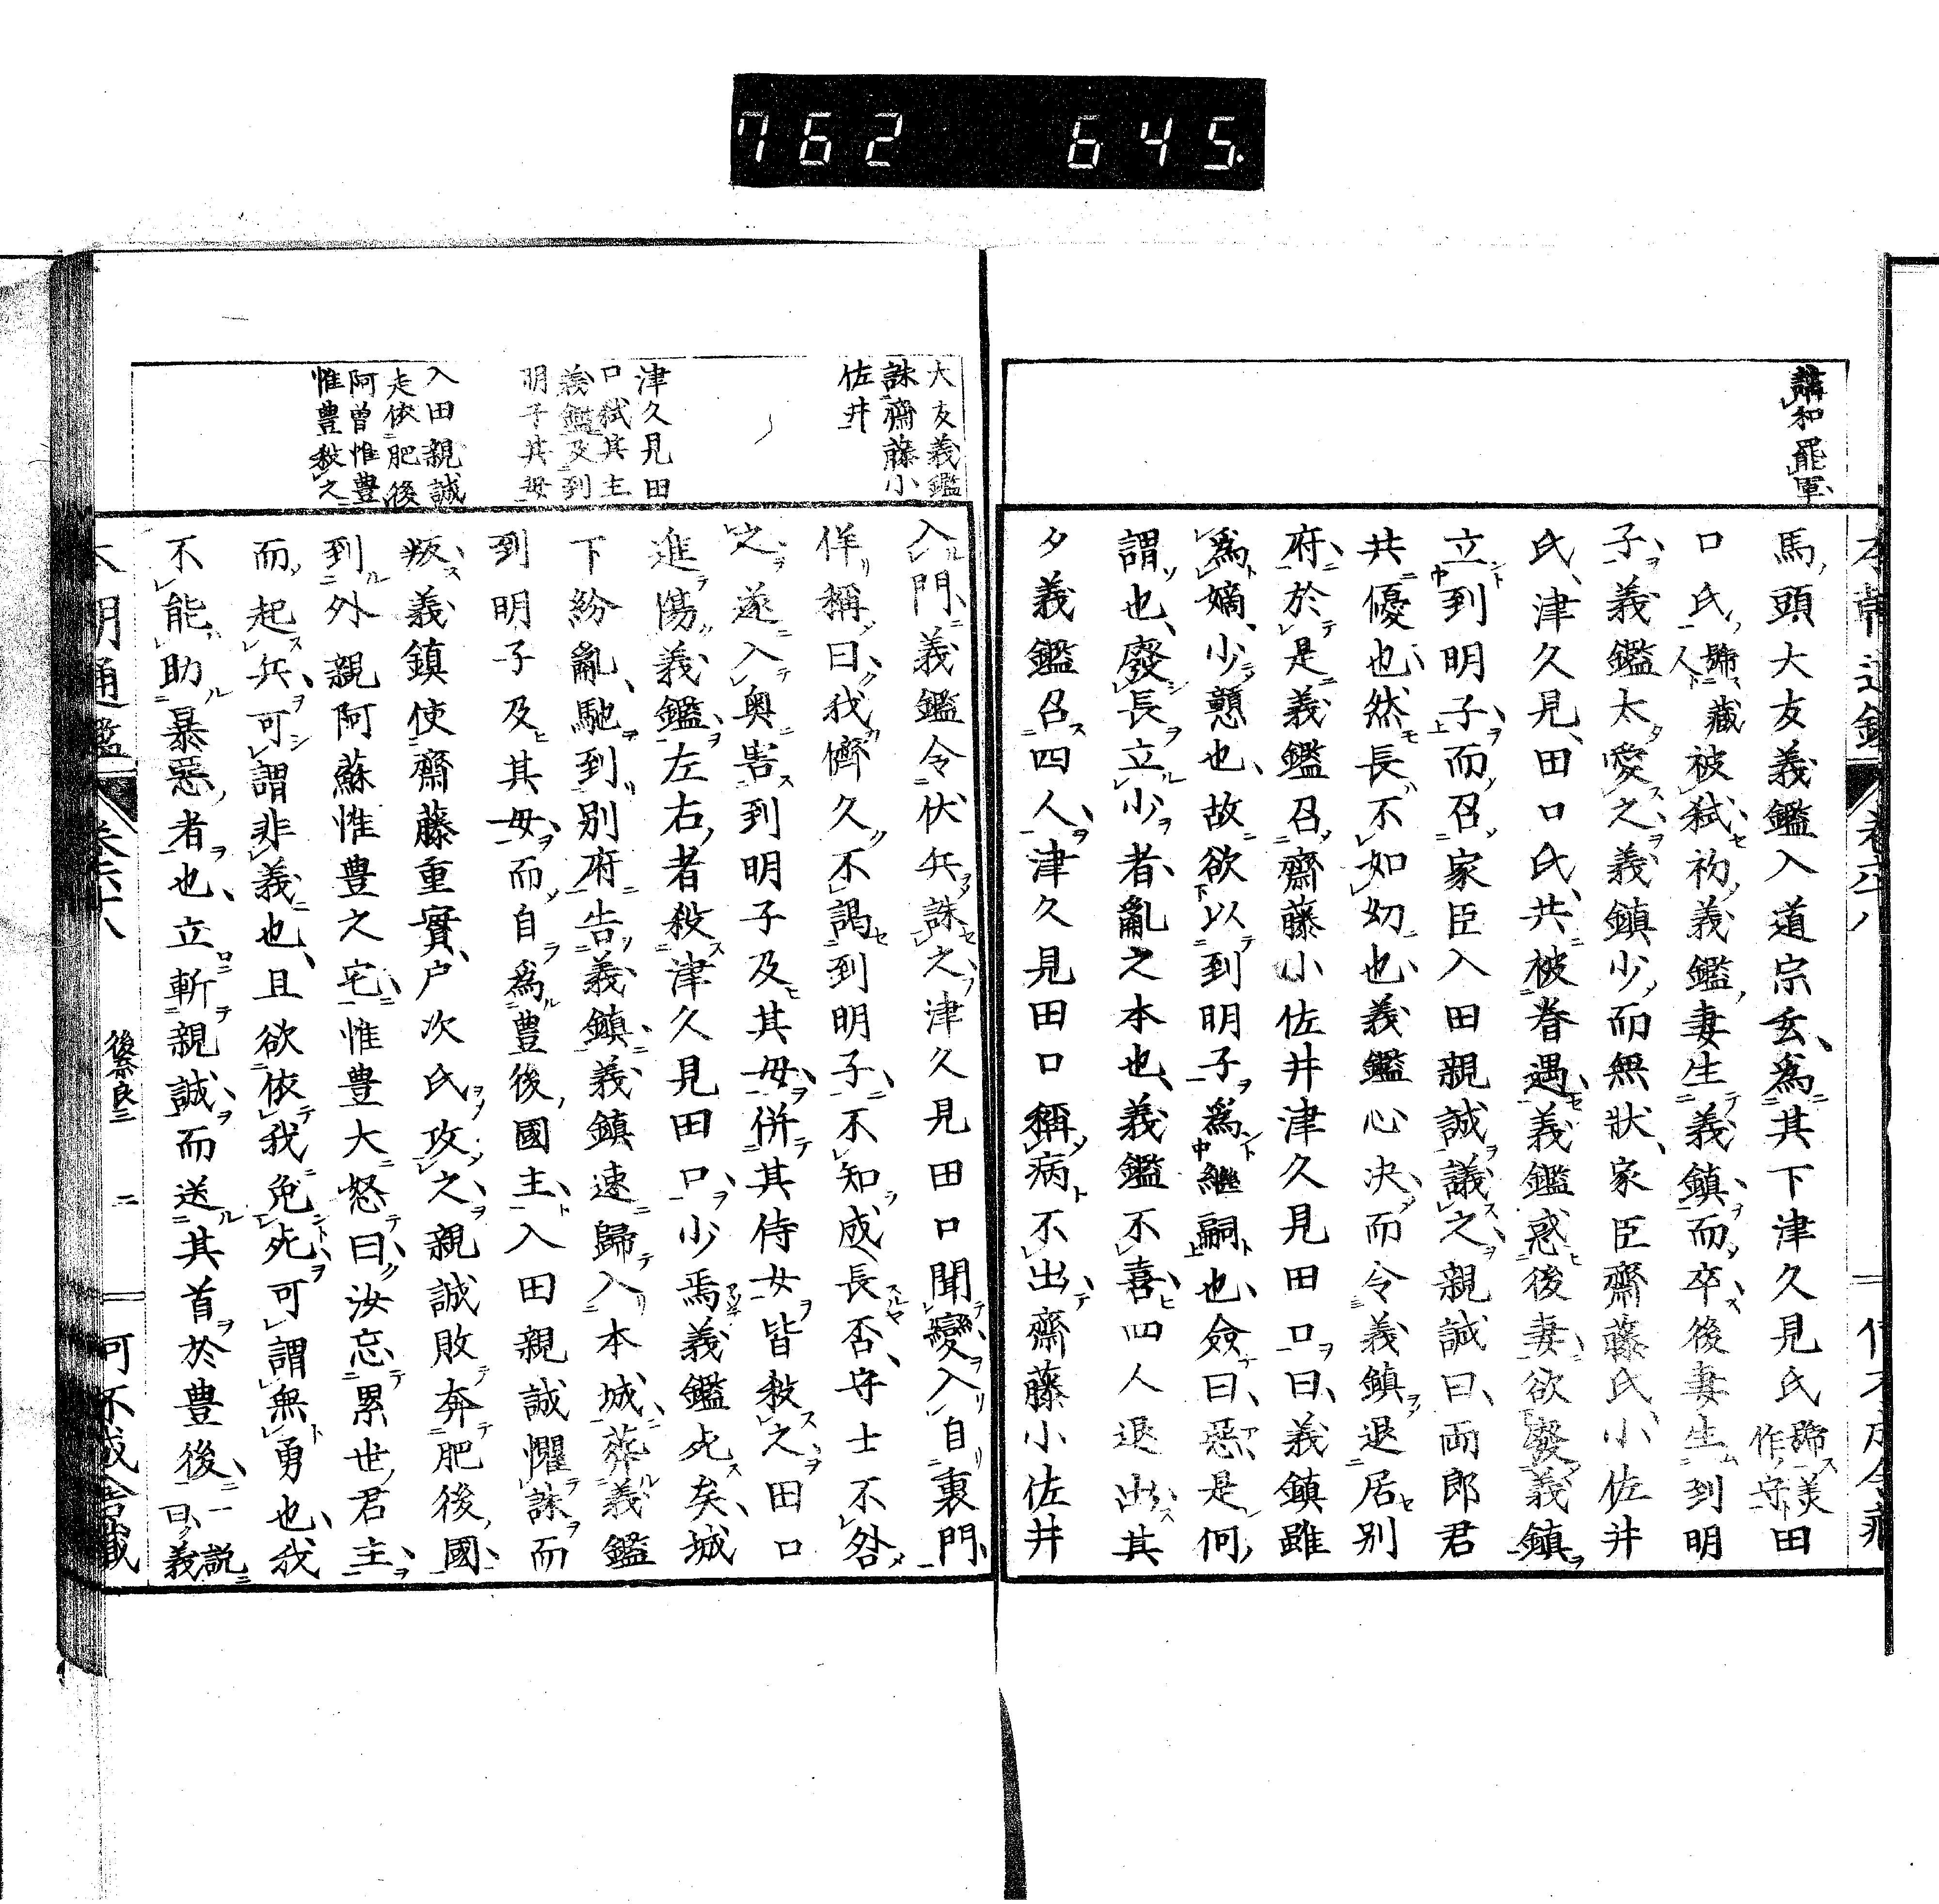 762 645.
講和罷軍
馬頭大友義鑑入道宗玄爲其下津久見氏號美作守田
口氏號藏人被弑初義鑑妻生義鎮而卒後妻生到明
子義鑑太愛之義鎮少而無狀家臣齋藤氏小佐井
氏津久見田口氏共被眷遇義鑑惑後妻欲廢義鎮
立到明子而召家臣入田親誠議之親誠曰兩郎君
共優也然長不如幼也義鑑心決而令義鎮退居别
府於是義鑑召齋藤小佐井津久見田口曰義鎮雖
爲嫡少戇也故欲以到明子爲繼嗣也僉曰惡是何
謂也廢長立少者亂之本也義鑑不喜四人退出其
夕義鑑召四人津久見田口稱病不出齋藤小佐井
大友義鑑
誅齋藤小
佐井
津久見田
口弑其主
義鑑及到
明子其母
入田親誠
走依肥後
阿曽惟豊
惟豊殺之
入門義鑑令伏兵誅之津久見田口聞變入自裏門
佯稱曰我儕久不謁到明子不知成長否守士不咎
之遂入奥害到明子及其母併其侍女皆殺之田口
進傷義鑑左右者殺津久見田口少焉義鑑死矣城
下紛亂馳到别府告義鎮義鎮速歸入本城葬義鑑
到明子及其母而自爲豊後國主入田親誠懼誅而
叛義鎮使齋藤重實戸次氏攻之親誠敗奔肥後國
到外親阿蘇惟豊之宅惟豊大怒曰汝忘累世君主
而起兵可謂非義也且欲依我免死可謂無勇也我
不能助暴惡者也立斬親誠而送其首於豊後一説曰義
本朝通鑑 後奈良三 二